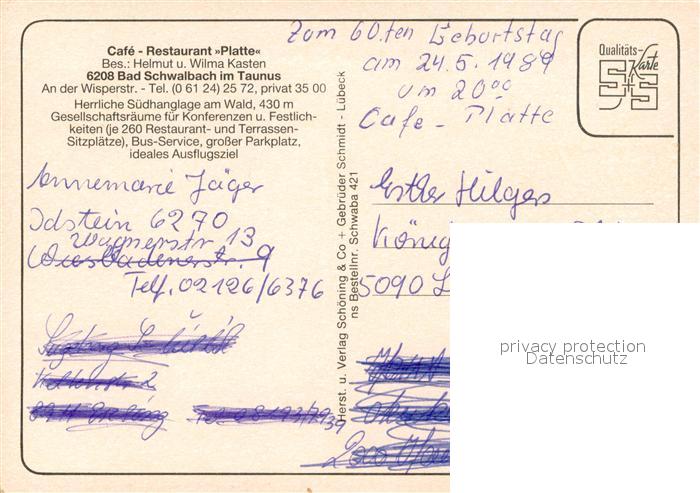 Café - Restaurant »Platte«
Bes.: Helmut u. Wilma Kasten
6208 Bad Schwalbach im Taunus
An der Wisperstr. - Tel. (0 61 24) 25 72, privat 35 00
Herrliche Südhanglage am Wald, 430 m
Gesellschaftsräume für Konferenzen u. Festlich-
keiten (je 260 Restaurant- und Terrassen-
Sitzplätze), Bus-Service, großer Parkplatz,
ideales Ausflugsziel
Zum 60.ten Geburtstag
am 24.5.1989
um 20⁰⁰
Cafe - Platte
Qualitäts-
Karte
S+S
Annemarie Jäger
Idstein 6270
Wagnerstr. 13
Wiesbadenerstr. 9
Telf. 02126/6376
Herst. u. Verlag Schöning & Co + Gebrüder Schmidt - Lübeck
ns Bestellnr. Schwaba 421
Esther Hilgers
König
5090 L
privacy protection
Datenschutz